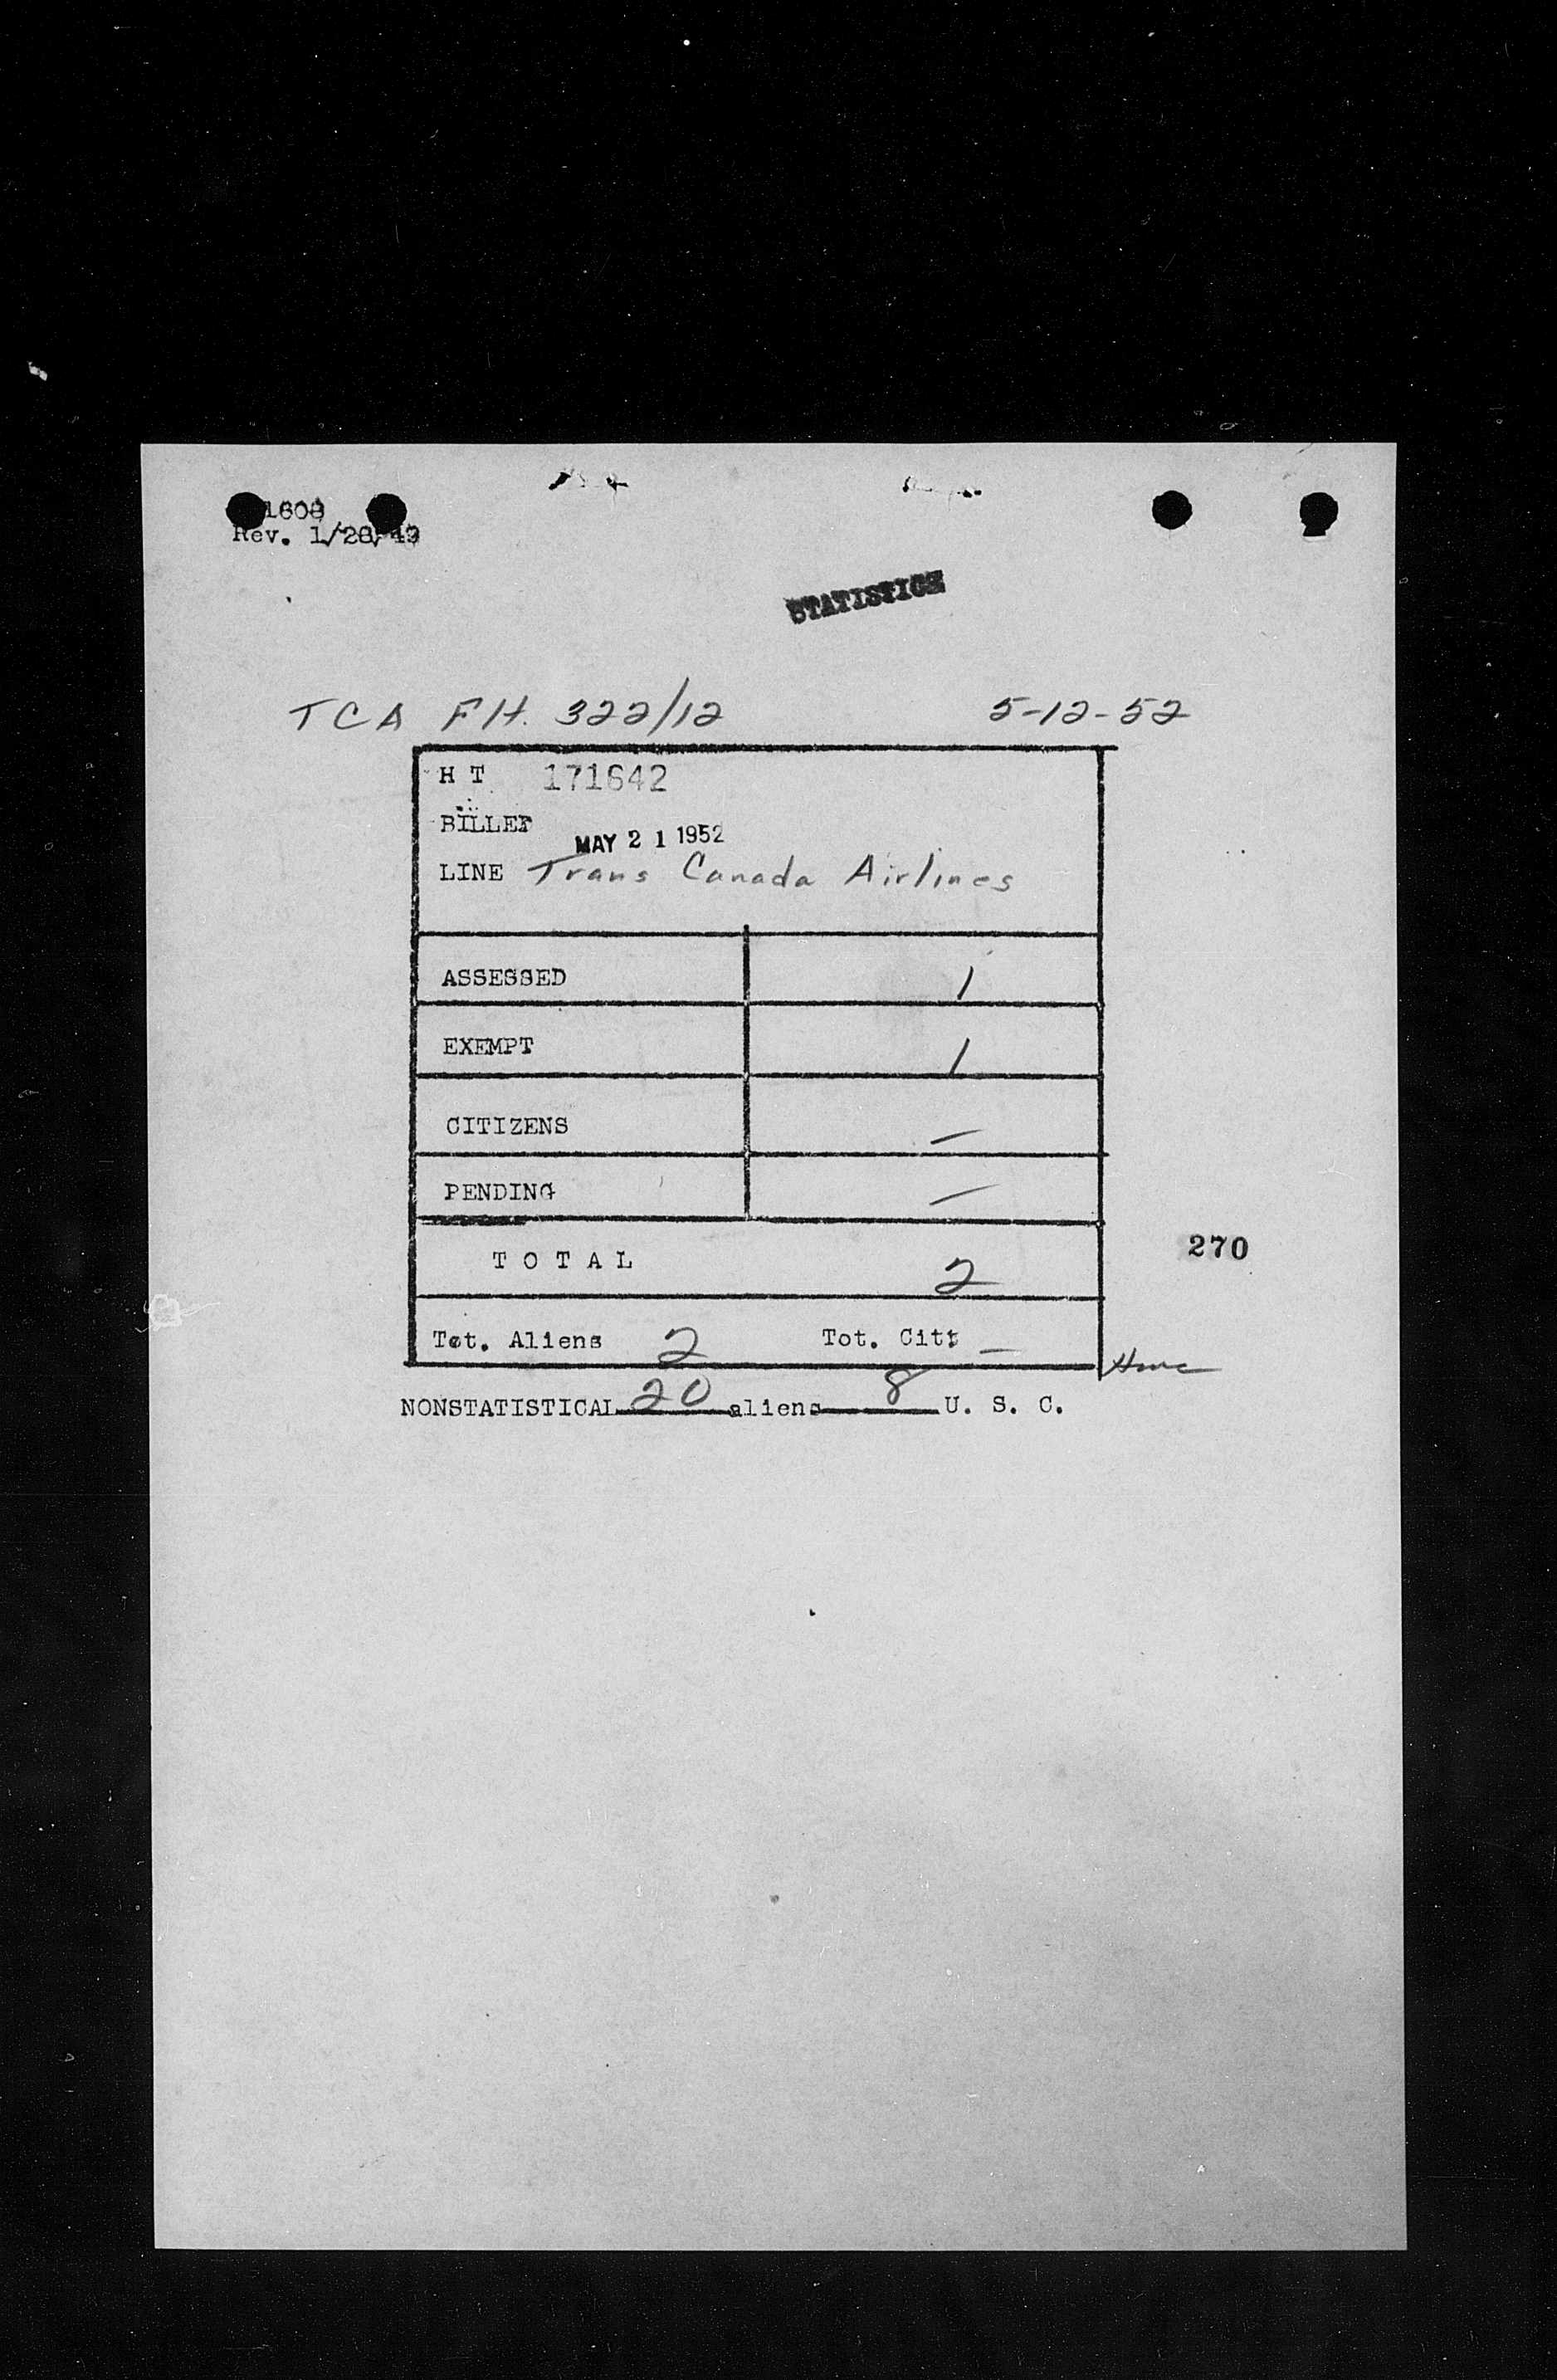 1608
Rev. 1/28/49
STATISTICS
TCA Flt. 322/12 5-12-52
H T 171642
BILLED MAY 21 1952
LINE Trans Canada Airlines
ASSESSED 1
EXEMPT 1
CITIZENS —
PENDING —
T O T A L 2
270
Tot. Aliens 2 Tot. Cit: —
NONSTATISTICAL 20 aliens 8 U. S. C.